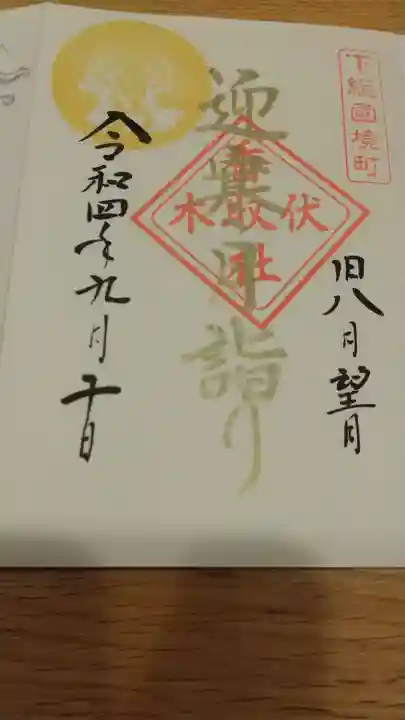 下総國境町
旧八月望月
迎寒月詣り
伏木香取社
令和四年九月十日